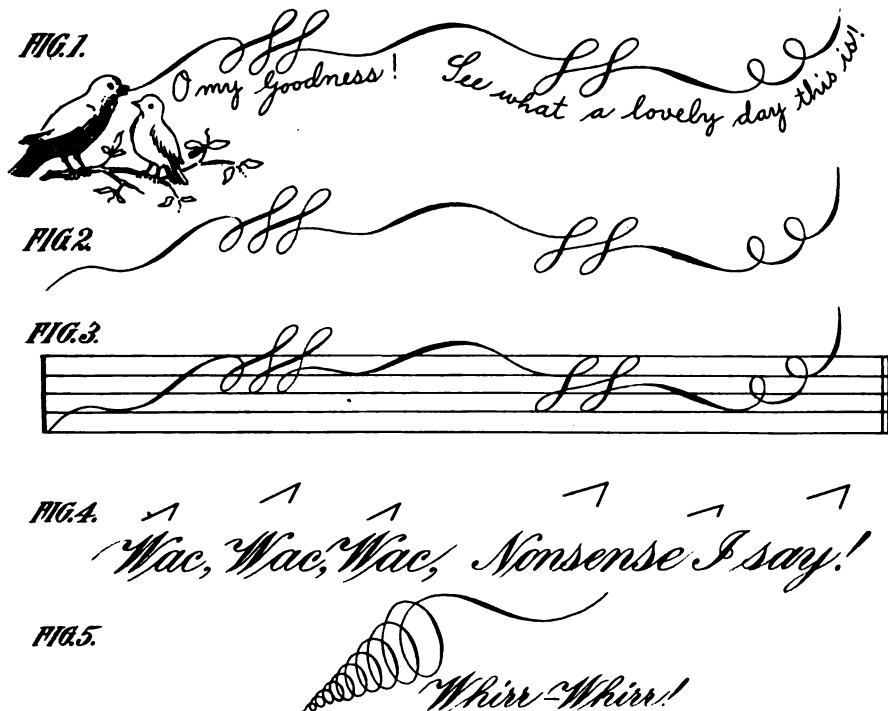 FIG.1.
O my Goodness! See what a lovely day this is!
FIG.2.
FIG.3.
FIG.4.
Wac, Wac, Wac, Nonsense I say!
FIG.5.
Whirr-Whirr!